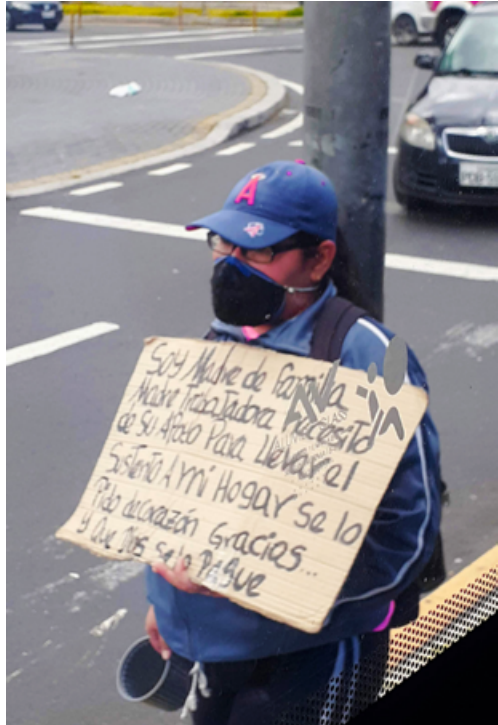 A
Soy Madre de familia
Madre Trabajadora Necesito
de Su Apoyo Para Llevar el
Sustento A mi Hogar Se lo
Pido de corazón Gracias...
y Que Dios Se lo Pague